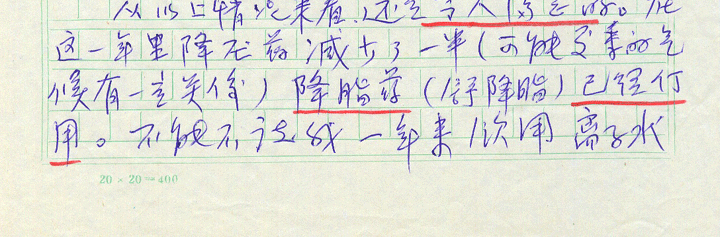 从以上情况来看，还是令人满意的。在
这一年里降压药减少了一半（可能夏季的气
候有一定关係）降脂药（舒降脂）已经仃
用。不能不说我一年来饮用离子水
20×20=400